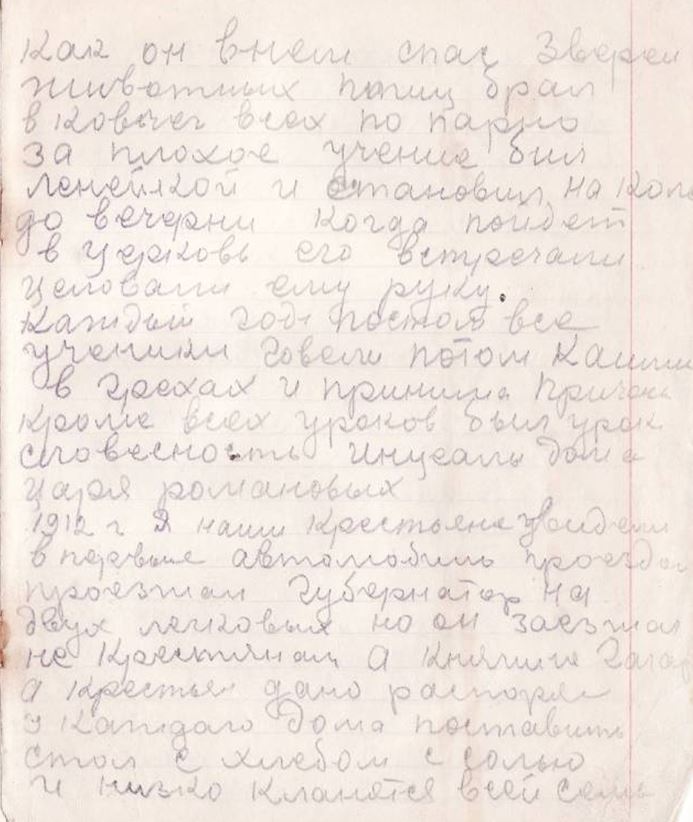 Как он в нем спас Зверей
животных птиц брал
в Ковчег всех по парно
за плохое учение бил
ленейкой и становил на коле
до вечерни когда пойдет
в церковь его встречали
целовали ему руку.
Каждый год постом все
ученики говели потом Каили
в грехах и принима Приче
кроме всех уроков был урок
словесность дома
царя романовых
1912 г я наши Крестьяне увидели
в первые автомобиль проездом
проезжал Губернатор на
двух легковых но он заезжал
не Крестянам А Княгине Гагар
а Крестьян дано распоря
у Каждого Дома поставить
стол с хлебом с солью
и низко Кланятся всей семь